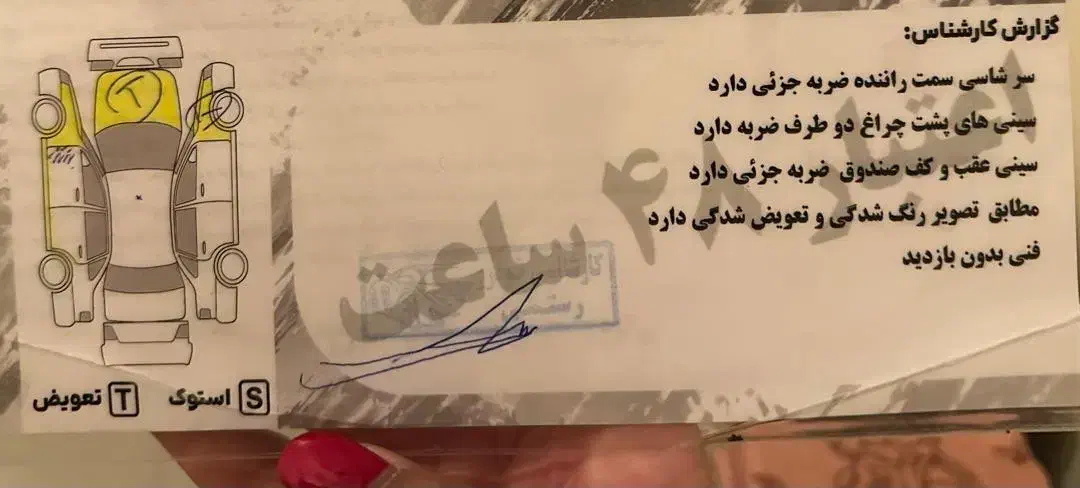 گزارش کارشناس:
سر شاسی سمت راننده ضربه جزئی دارد
سینی های پشت چراغ دو طرف ضربه دارد
سینی عقب و کف صندوق ضربه جزئی دارد
مطابق تصویر رنگ شدگی و تعویض شدگی دارد
فنی بدون بازدید
اعتبار ۴۸ ساعت
T
S استوک
T تعویض